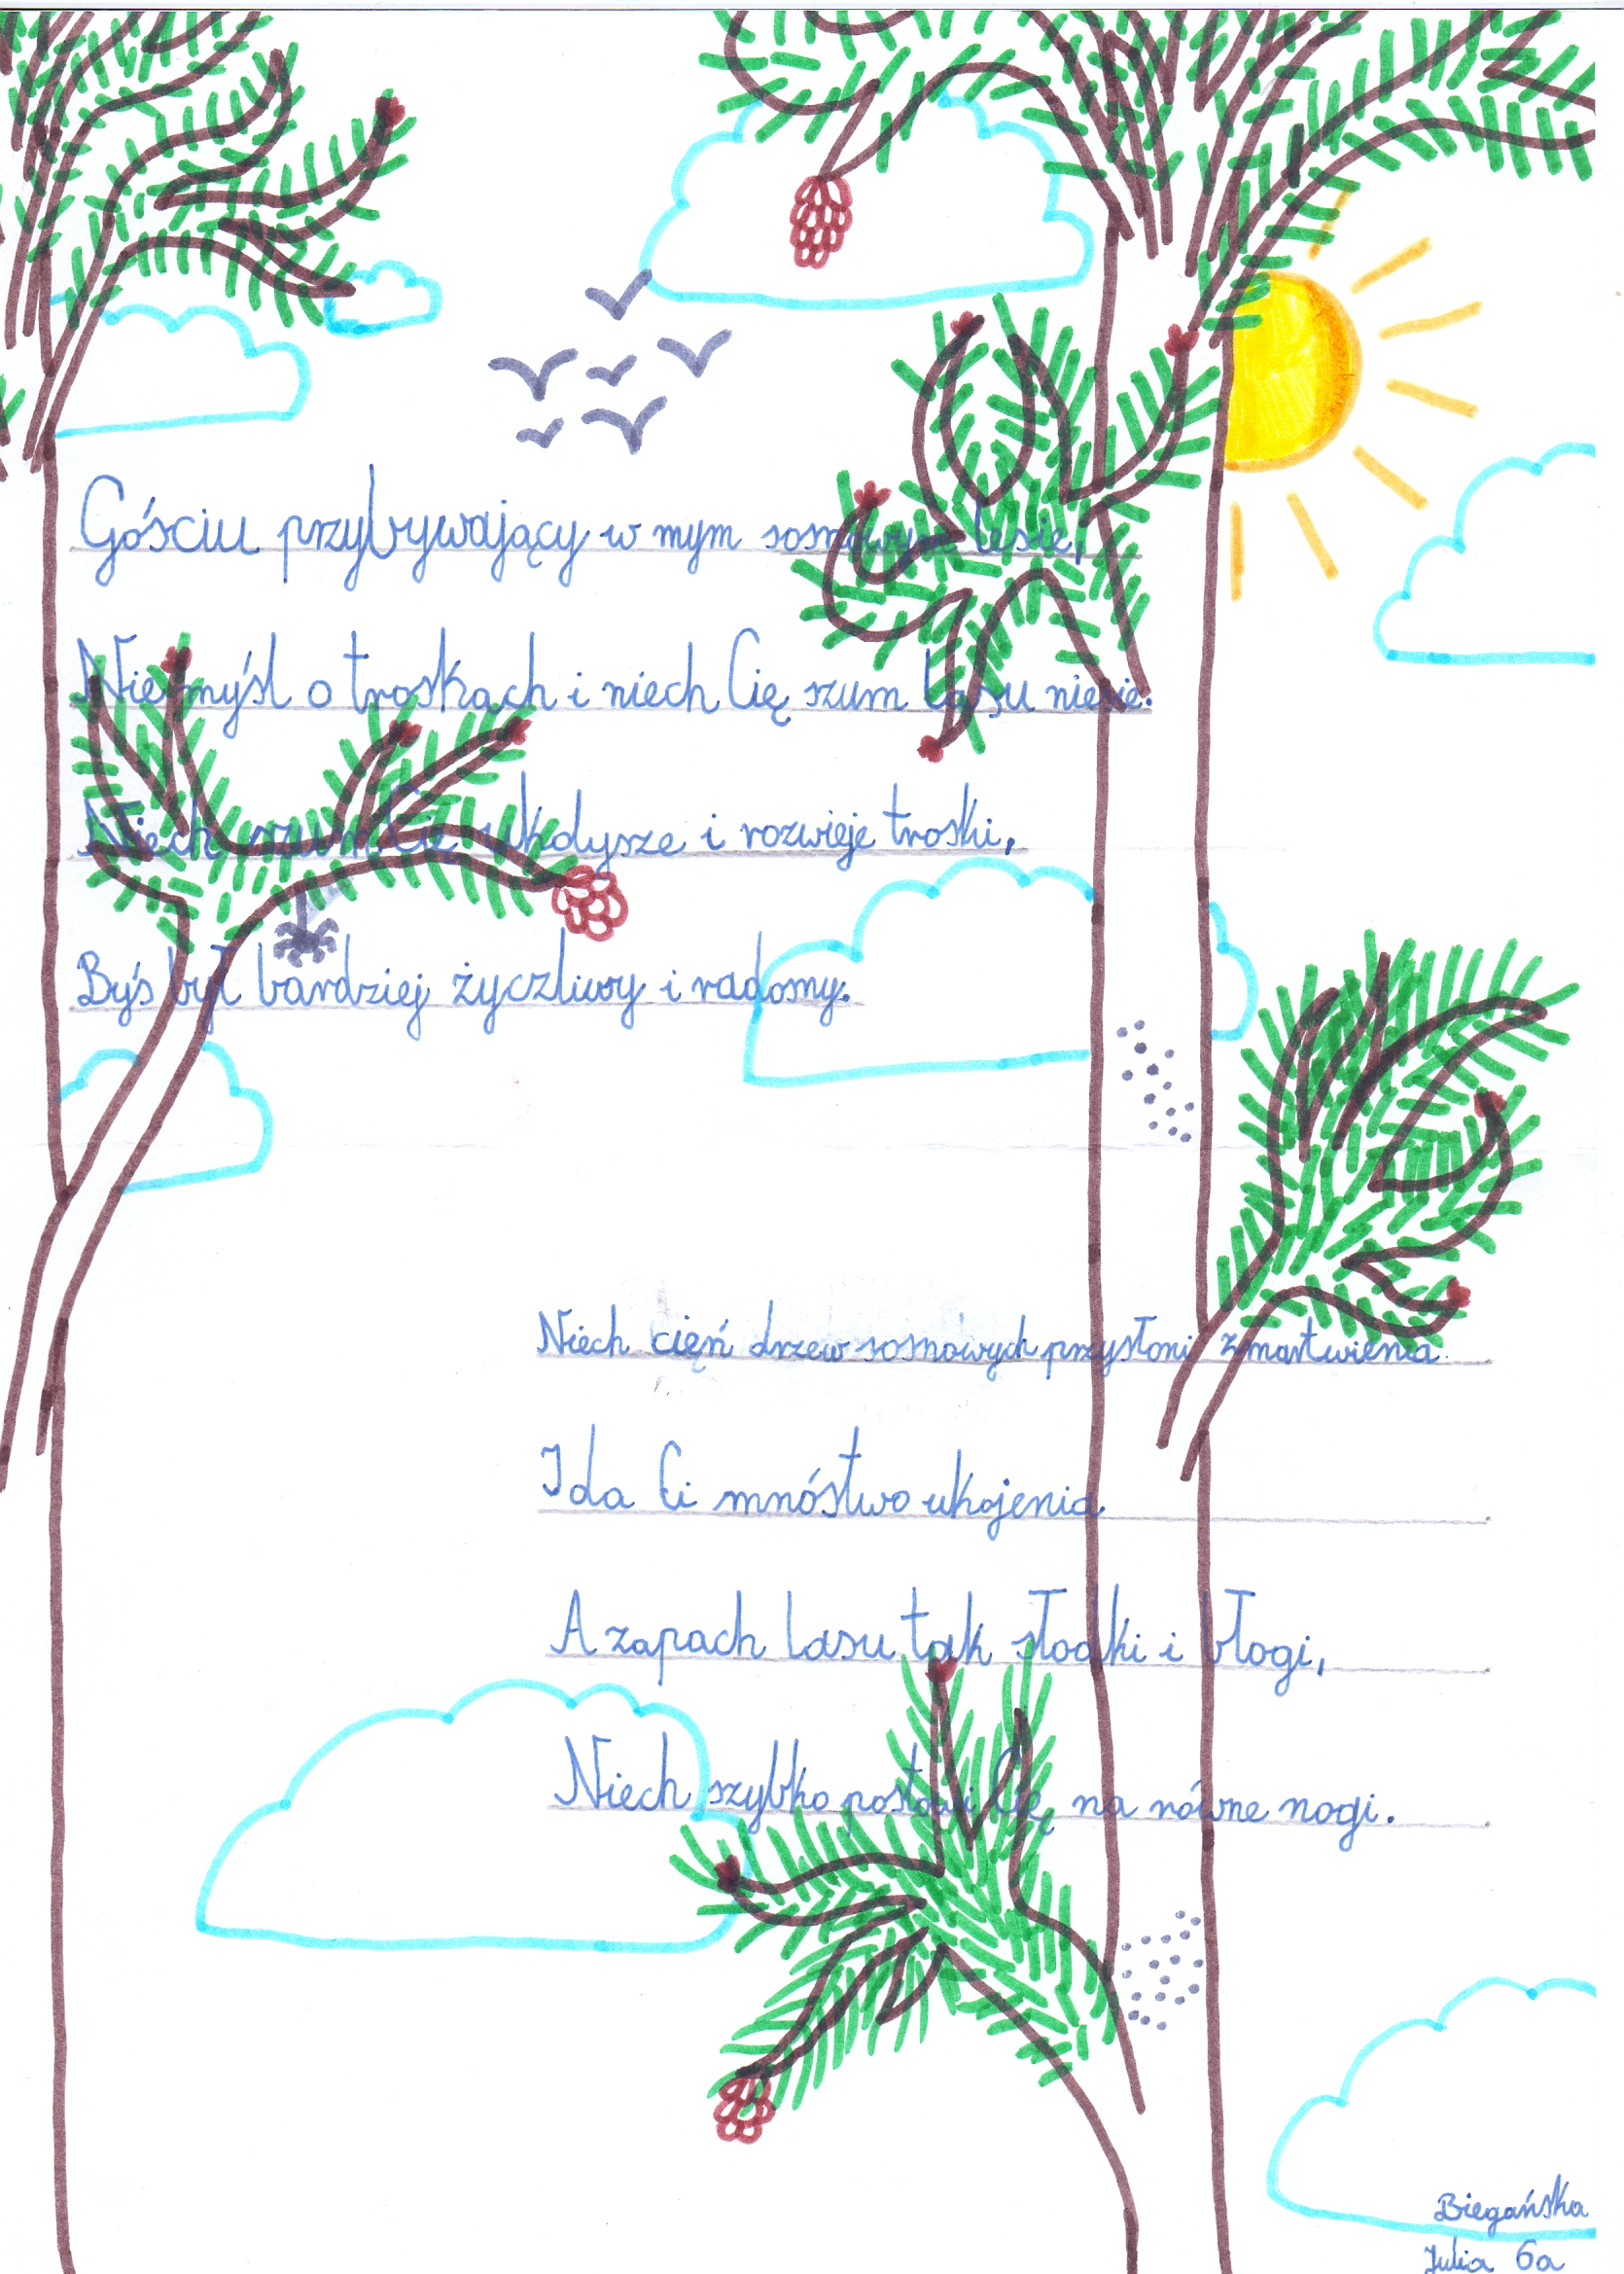 Gościu przybywający w mym sosnowym lesie,
Nie myśl o troskach i niech Cię szum lasu niesie.
Niech szum Cię ukołysze i rozwieje troski,
Byś był bardziej życzliwy i radosny.
Niech cień drzew sosnowych przysłoni zmartwienia
I da Ci mnóstwo ukojenia
A zapach lasu tak słodki i błogi,
Niech szybko postawi Cię na równe nogi.
Biegańska
Julia 6a